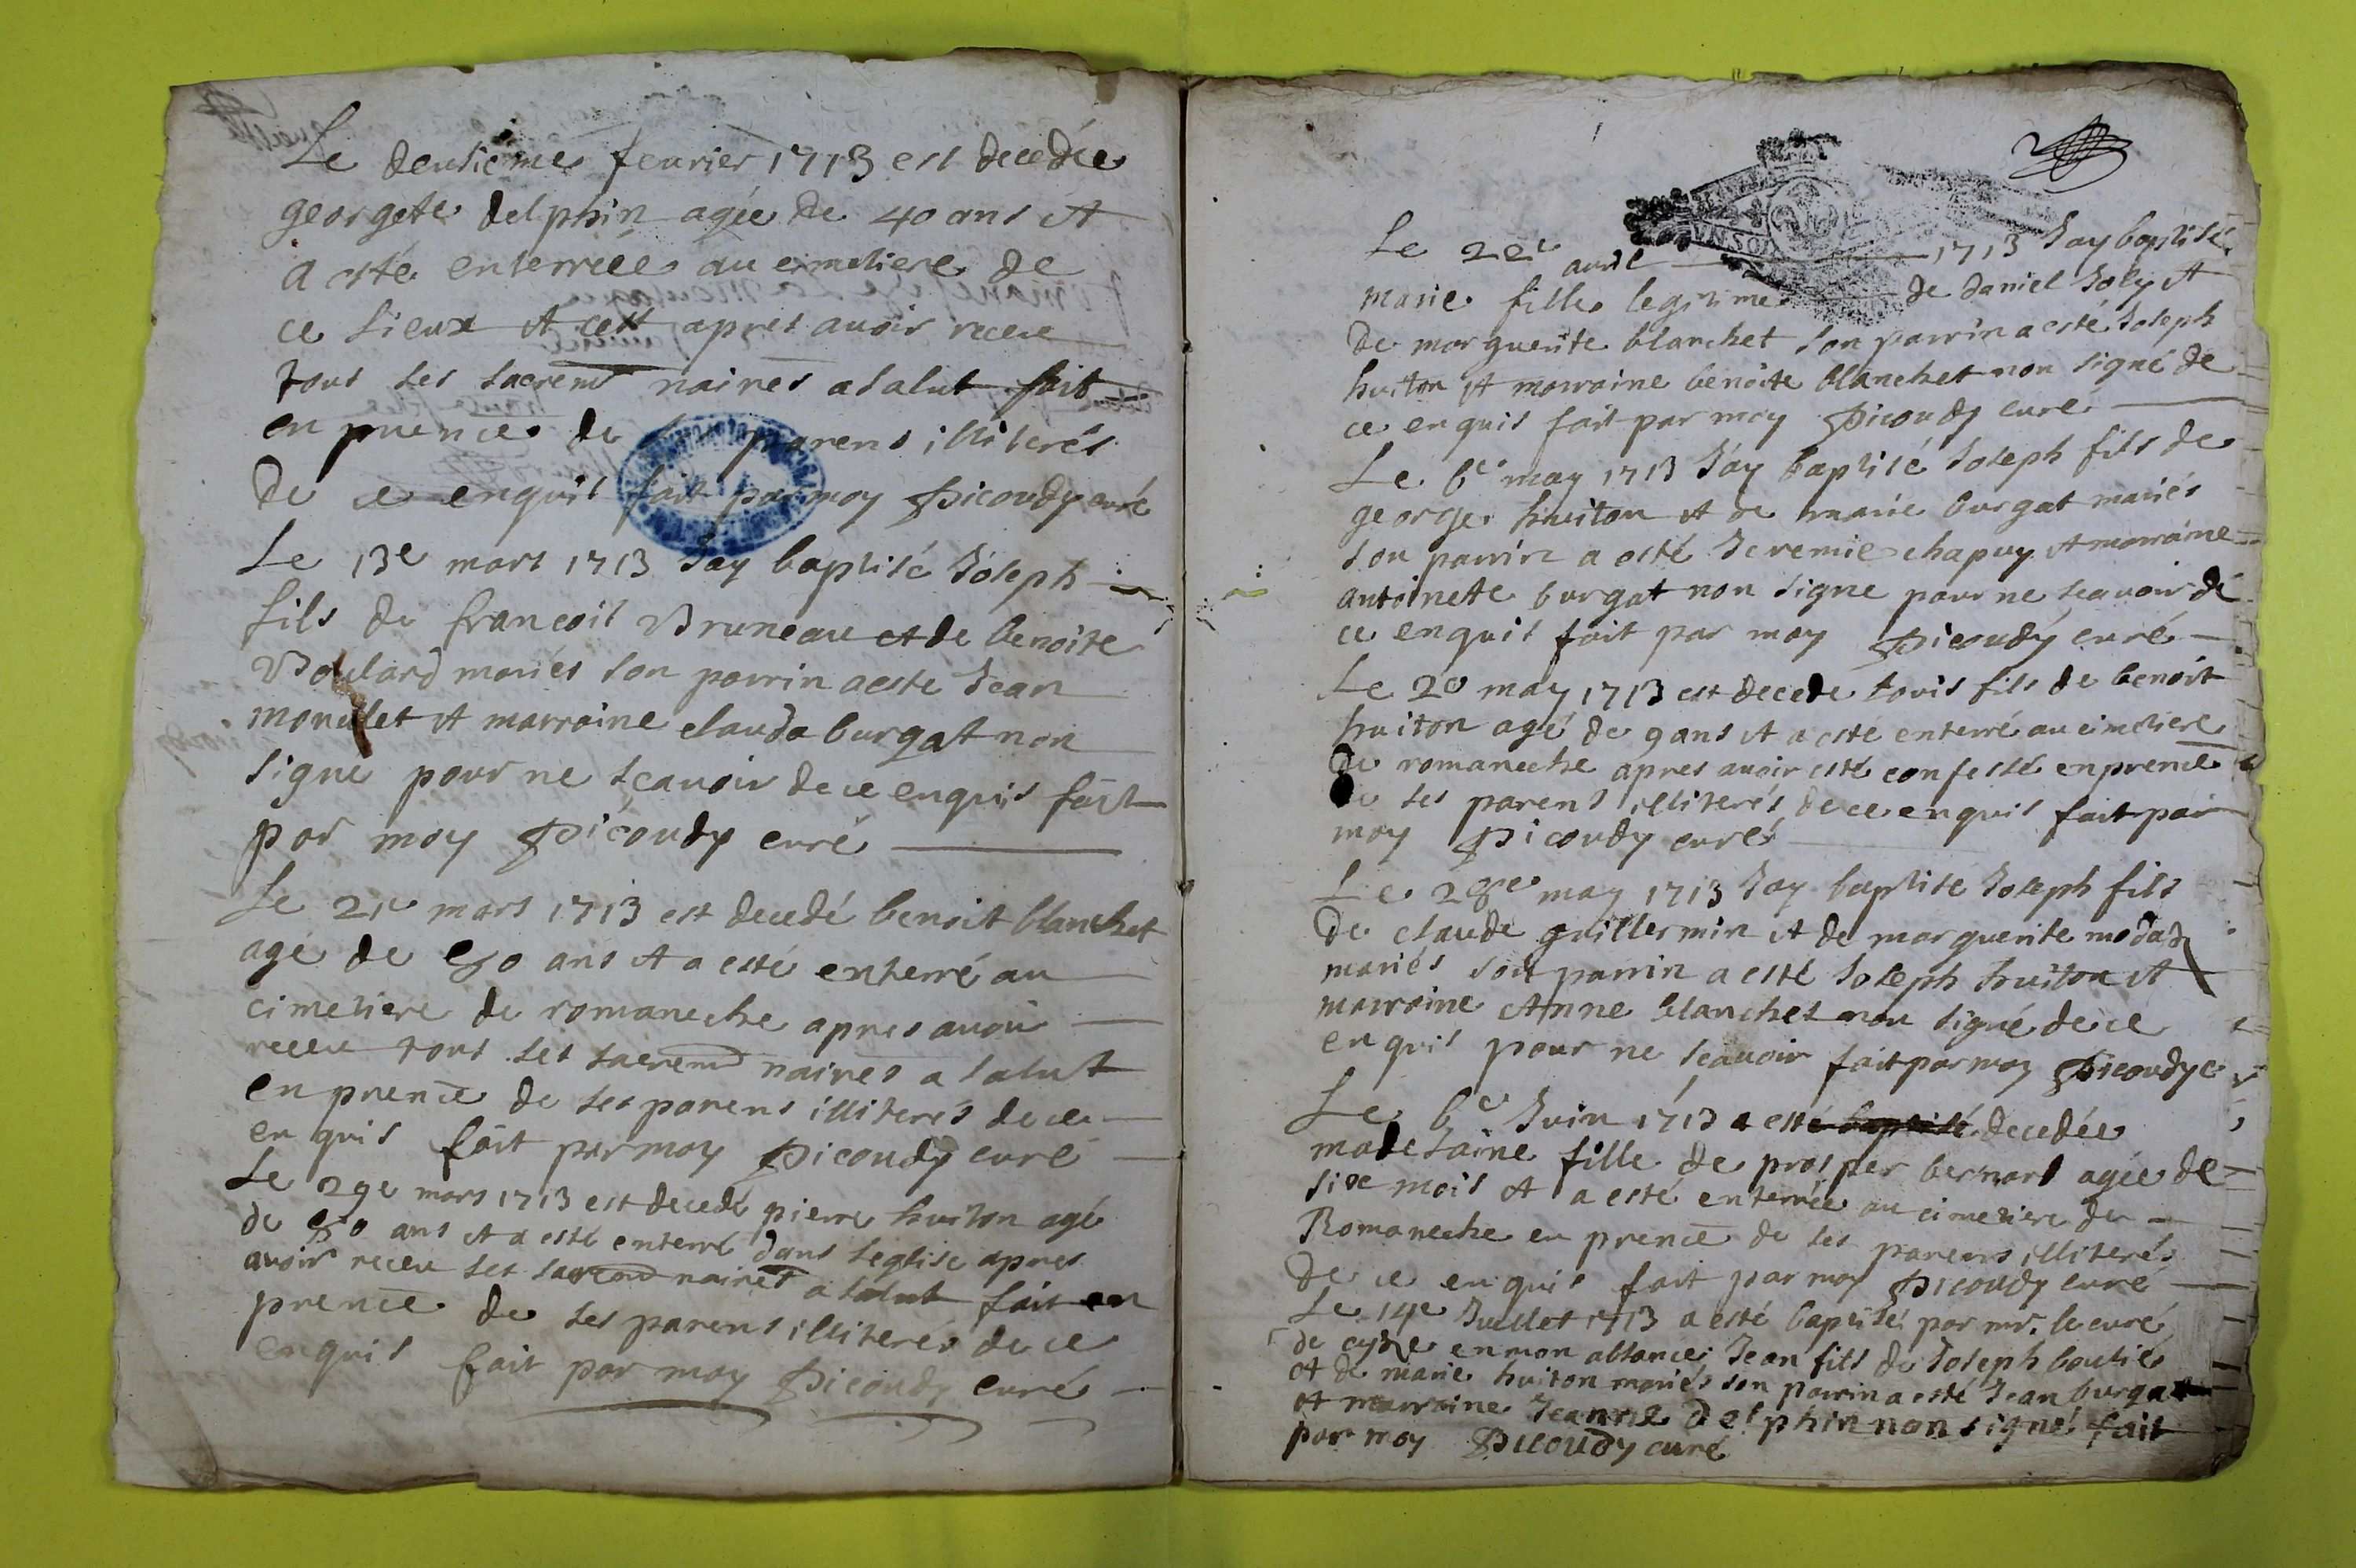 Le deusieme feurier 1713 est decedée
georgete delphin agée de 40 ans et
a esté enterrée au cimetiere de
ce lieux et cest apres auoir receu
tous ses sacremts naires a salut fait
en prience de parens illiterés
de ce enquis fait par moy Picoudy curé
Le 13e mars 1713 Jay baptisé Joseph
fils de francois Bruneau et de benoite
Boulard mariés son parrin a este Jean
monulet et marraine clauda burgat non
signé pour ne scauoir de ce enquis fait
par moy Picoudy curé
Le 21e mars 1713 est decedé benoit blanchet
agé de 80 ans et a esté enterré au
cimetiere de romaneche apres auoir
receu tous ses sacremts naires a salut
en prence de ses parens illiterés de ce
enquis fait par moy Picoudy curé
Le 29e mars 1713 est decedé pierre huiton agé
de 80 ans et a esté enterré dans leglise apres
auoir receu ses sacremts naires a salut fait en
prence de ses parens illiterés de ce
enquis fait par moy Picoudy curé
Le 22e auril 1713 Jay baptisé
marie fille legitime de daniel Joly et
de marguerite blanchet son parrin a esté Joseph
huiton et marraine benoite blanchet non signé de
ce enquis fait par moy Picoudy curé
Le 6e may 1713 Jay baptisé Joseph fils de
george huiton et de marie burgat mariés
son parrin a esté Jeremie chapuy et marraine
antoinette burgat non signe pour ne scauoir de
ce enquis fait par moy Picoudy curé
Le 20 may 1713 est decede louis fils de benoit
huiton agé de 9 ans et a esté enterré au cimetiere
de romaneche apres auoir esté confessé en prence
de ses parens illiterés de ce enquis fait par
moy Picoudy curé
Le 28e may 1713 Jay baptise Joseph fils
de claude guillermin et de marguerite modas
mariés son parrin a esté Joseph huiton et
marraine Anne blanchet non signé de ce
enquis pour ne scauoir fait par moy Picoudy c
Le 6e Juin 1713 a esté baptisé decedée
madelaine fille de prosper bernard agée de
six mois et a esté enterrée au cimetiere de
Romaneche en prence de ses parens illiterés
de ce enquis fait par moy Picoudy curé
Le 14e Juillet 1713 a esté baptisé par mr. le curé
de cyze en mon absance Jean fils de Joseph boutié
et de marie huiton mariés son parrin a esté Jean burgat
et marraine Jeanne delphin non signé fait
par moy Picoudy curé